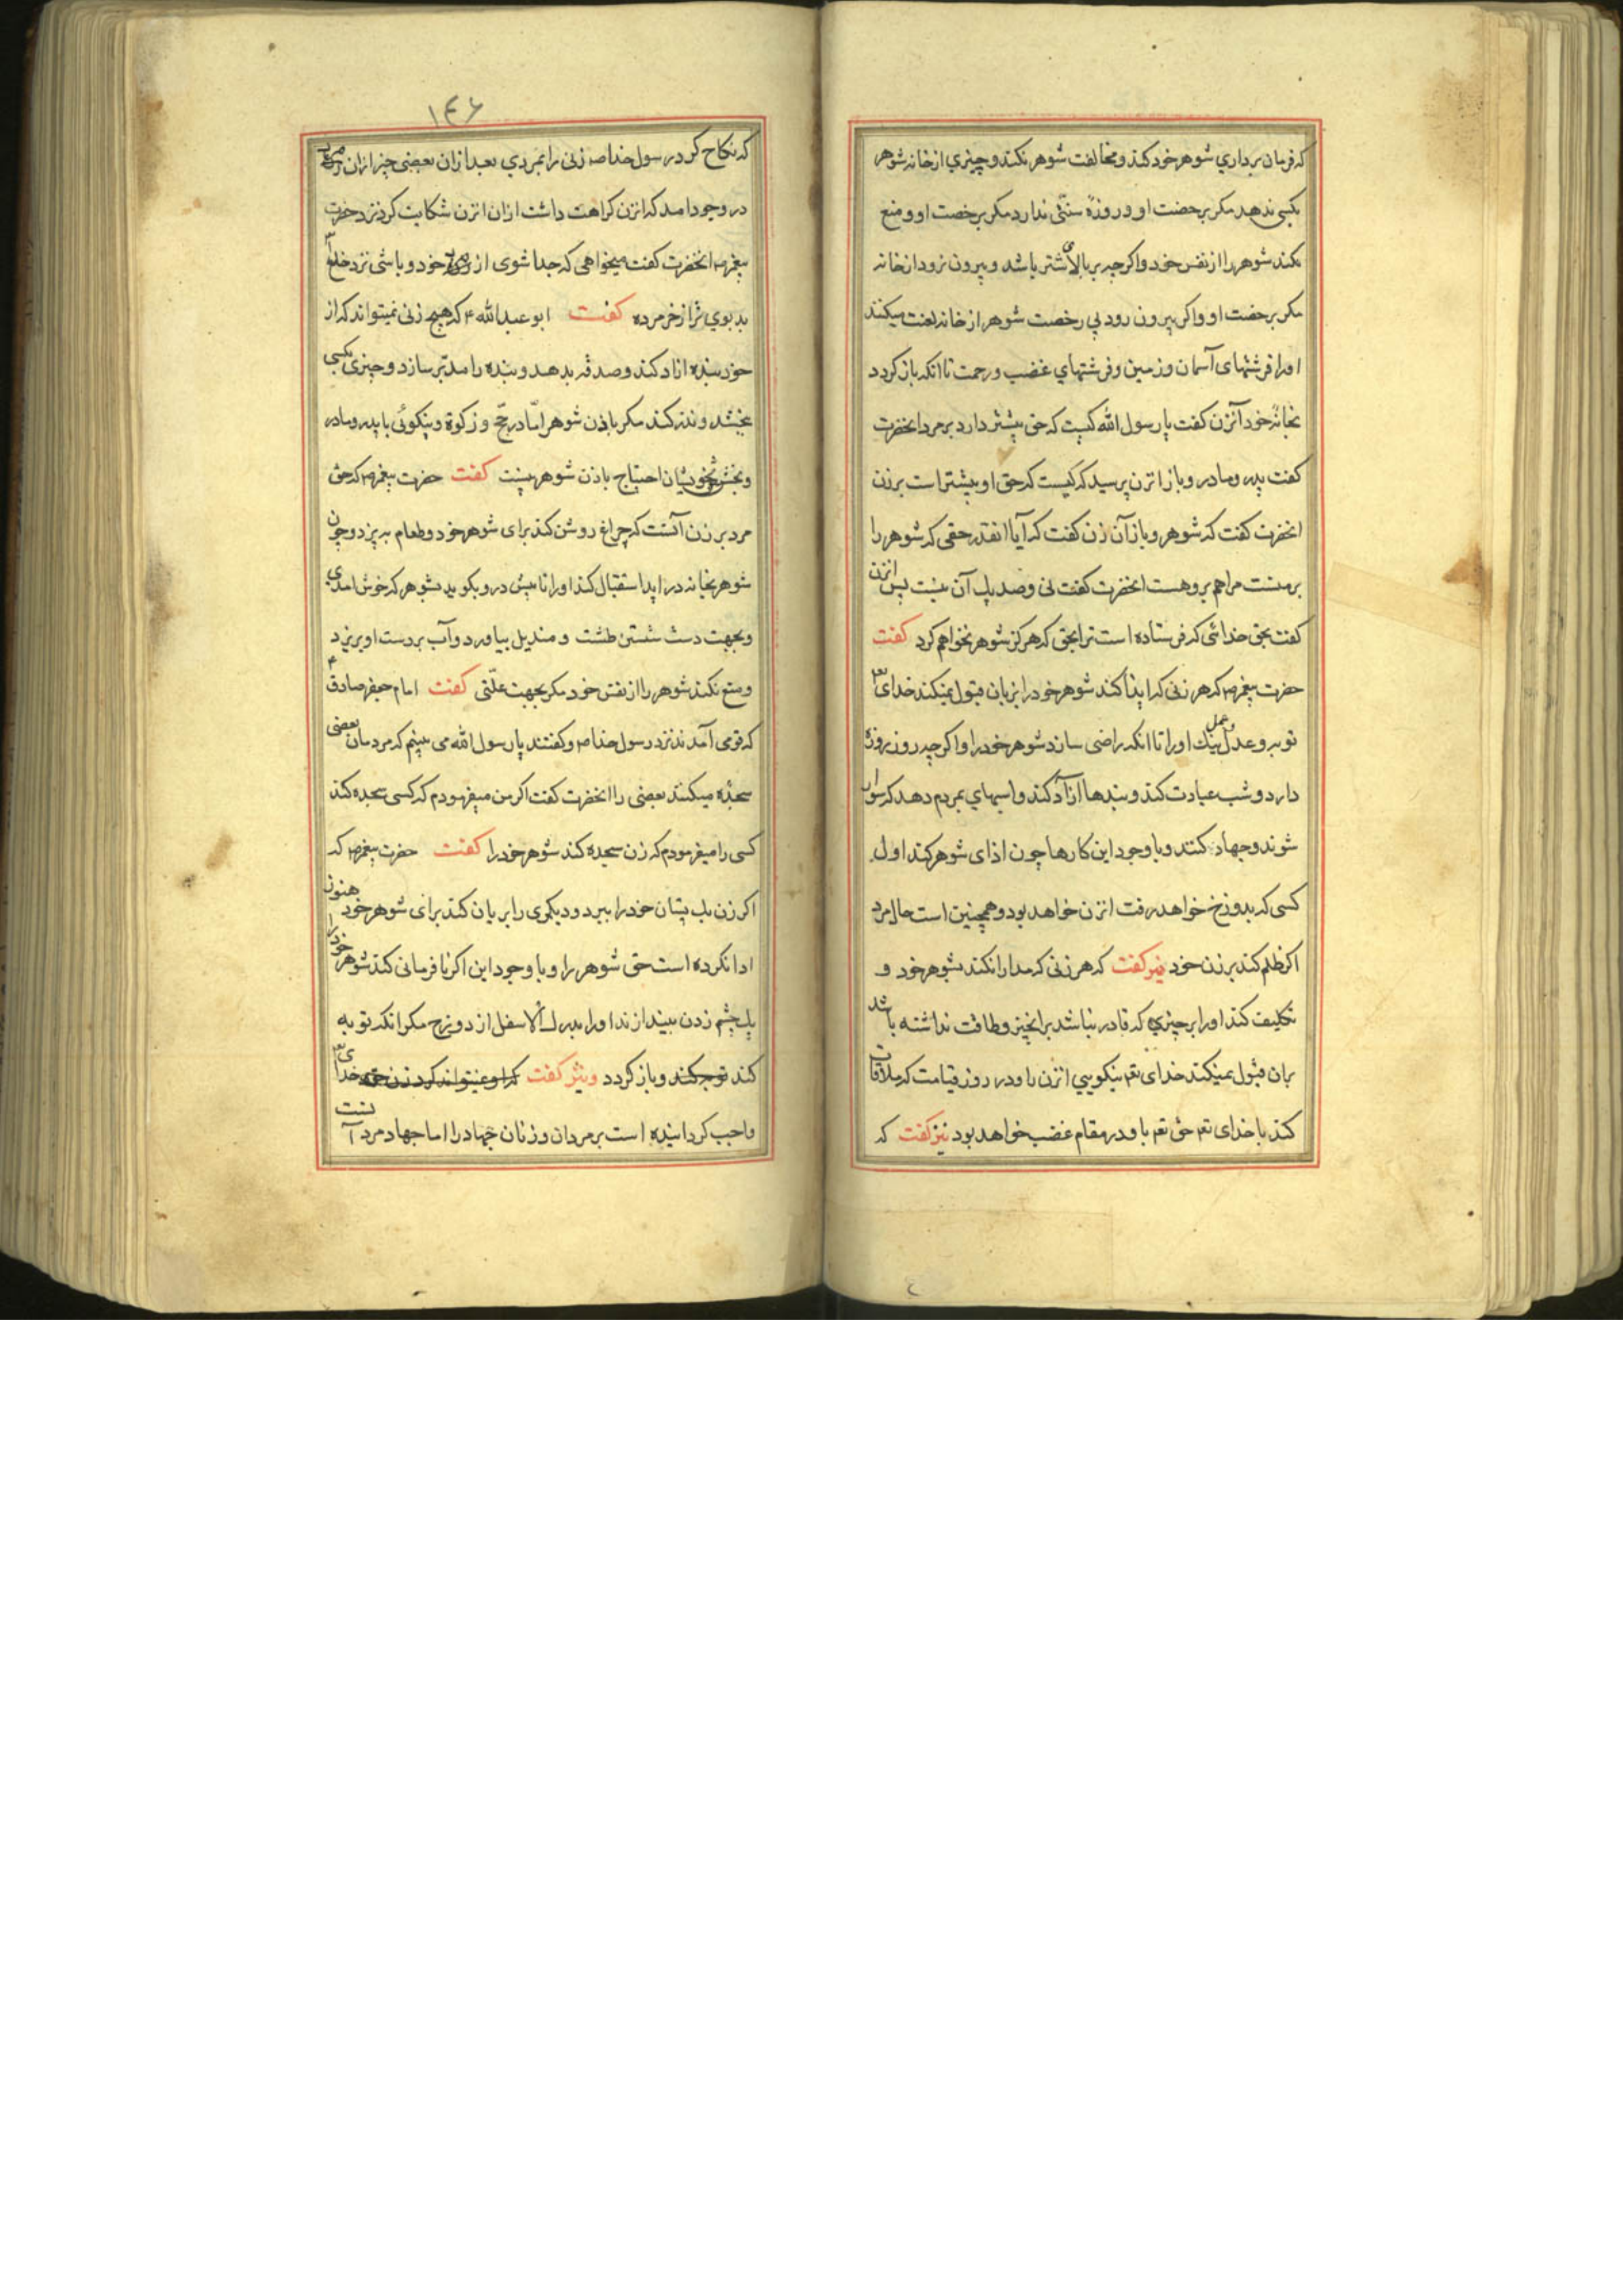 که فرمان برداري شوهر خود کند و مخالفت شوهر نکند و چیزي از خانه شوهر
بکسی ندهد مکر برخصت او و روزهٔ سنتی ندارد مکر برخصت او و منع
نکند شوهر را از نفس خود و اکرچه بر بالای شتر باشد و بیرون نرود از خانه
مکر برخصت او و اکر بیرون رود بی رخصت شوهر از خانه لعنت میکنند
اورا فرشتهای آسمان و زمین و فرشتهاي غضب و رحمت تا انکه باز کردد
بخانه خود آنزن کفت یا رسول الله کیست که حق بیشتر دارد بر مرد انحضرت
کفت پدر و مادر و باز انزن پرسید که کیست که حق او بیشتر است بر زن
انحضرت کفت که شوهر و باز آن زن کفت که آیا انقدر حقی که شوهر را
بر منست مرا هم برو هست انحضرت کفت نی و صد یك آن نیست پس انزن
کفت بحق خدائی که فرستاده است ترا بحق که هرکز شوهر نخواهم کرد کفت
حضرت پیغمبر ص که هر زنی که ایذا کند شوهر خود را بزبان قبول نمیکند خدای تع
توبه و عدل و عمل نیك اورا تا انکه راضی سازد شوهر خود را و اکرچه روز روزه
دارد و شب عبادت کند و بندها ازاد کند و اسبهاي بمردم دهد که سوار
شوند و جهاد کنند و با وجود این کارها چون اذای شوهر کند اول
کسی که بدوزخ خواهد رفت انزن خواهد بود و همچنین است حال مرد
اکر ظلم کند بر زن خود نیز کفت که هر زنی که مدارا نکند بشوهر خود و
تکلیف کند اورا بر چیزي که قادر نباشد بر انچیز و طاقت نداشته باشد
بران قبول نمیکند خدای تع نیکویي انزن را و در روز قیامت که ملاقات
کند با خدای تع حق تع با و در مقام غضب خواهد بود نیز کفت که
۱۴۶
که نکاح کرد رسول خدا ص زنی را بمردي بعد ازان بعضی چیز ازان مرد
در وجود امد که انزن کراهت داشت ازان انزن شکایت کرد نزد حضرت
پیغمبر ص انحضرت کفت میخواهی که جدا شوی از خود و باشی نزد خدا
بد بوي تر از خر مرده کفت ابو عبد الله ع که هیچ زنی نمیتواند که از
خود بنده ازاد کند و صدقه بدهد و بنده را مدبّر سازد و چیزی بکسی
بخشد و نذر کند مکر باذن شوهر امّا در حج و زکوة و نیکوئی با پدر و مادر
و بخشش بخویشان احتیاج باذن شوهر نیست کفت حضرت پیغمبر ص که حق
مرد بر زن آنست که چراغ روشن کند برای شوهر خود و طعام به پزد و چون
شوهر بخانه در اید استقبال کند اورا تا پیش در و بکوید بشوهر که خوش امدی
و بجهت دست شستن طشت و مندیل بیاورد و آب بر دست او بریزد
و منع نکند شوهر را از نفس خود مکر بجهت علّتی کفت امام جعفر صادق ع
که قومی آمدند نزد رسول خدا ص و کفتند یا رسول الله می بینم که مردمان بعضی
سجده میکنند بعضی را انحضرت کفت اکر من میفرمودم که کسی سجده کند
کسی را میفرمودم که زن سجده کند شوهر خود را کفت حضرت پیغمبر ص که
اکر زن یك پستان خود را ببرد و دیکری را بریان کند برای شوهر خود هنوز
ادا نکرده است حق شوهر را و با وجود این اکر نا فرمانی کند شوهر خود را
یك چشم زدن بیندازند اورا بدرك الاسفل از دوزخ مکر انکه توبه
کند توبه کند و باز کردد و نیز کفت که او نمیتواند کرد زن خدای تع
واجب کردانیده است بر مردان و زنان جهاد را اما جهاد مرد آنست